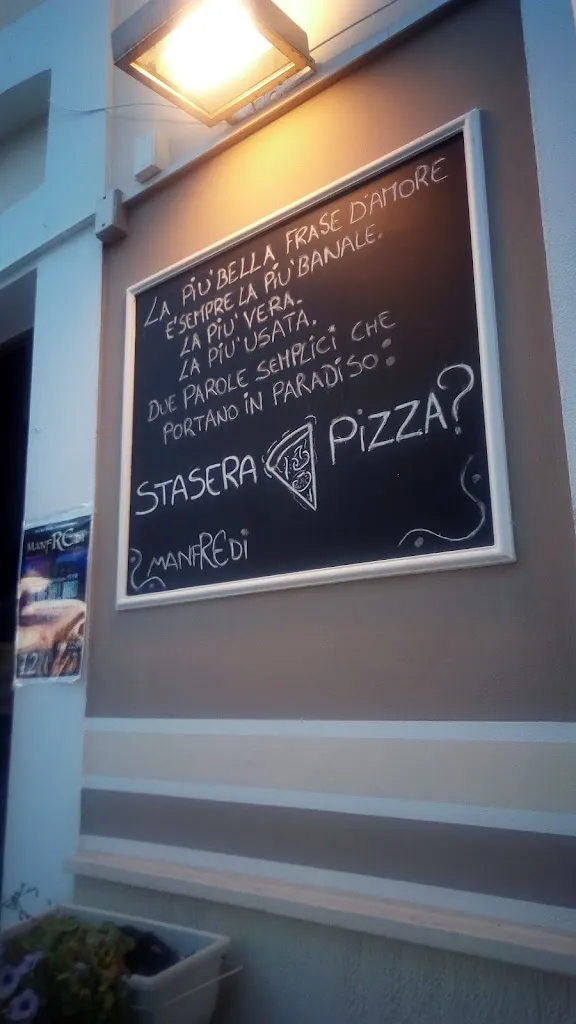 LA PIU' BELLA FRASE D'AMORE
E' SEMPRE LA PIU' BANALE.
LA PIU' VERA.
LA PIU' USATA.
DUE PAROLE SEMPLICI CHE
PORTANO IN PARADISO:
STASERA PIZZA?
MANFREDI
MANFREDI